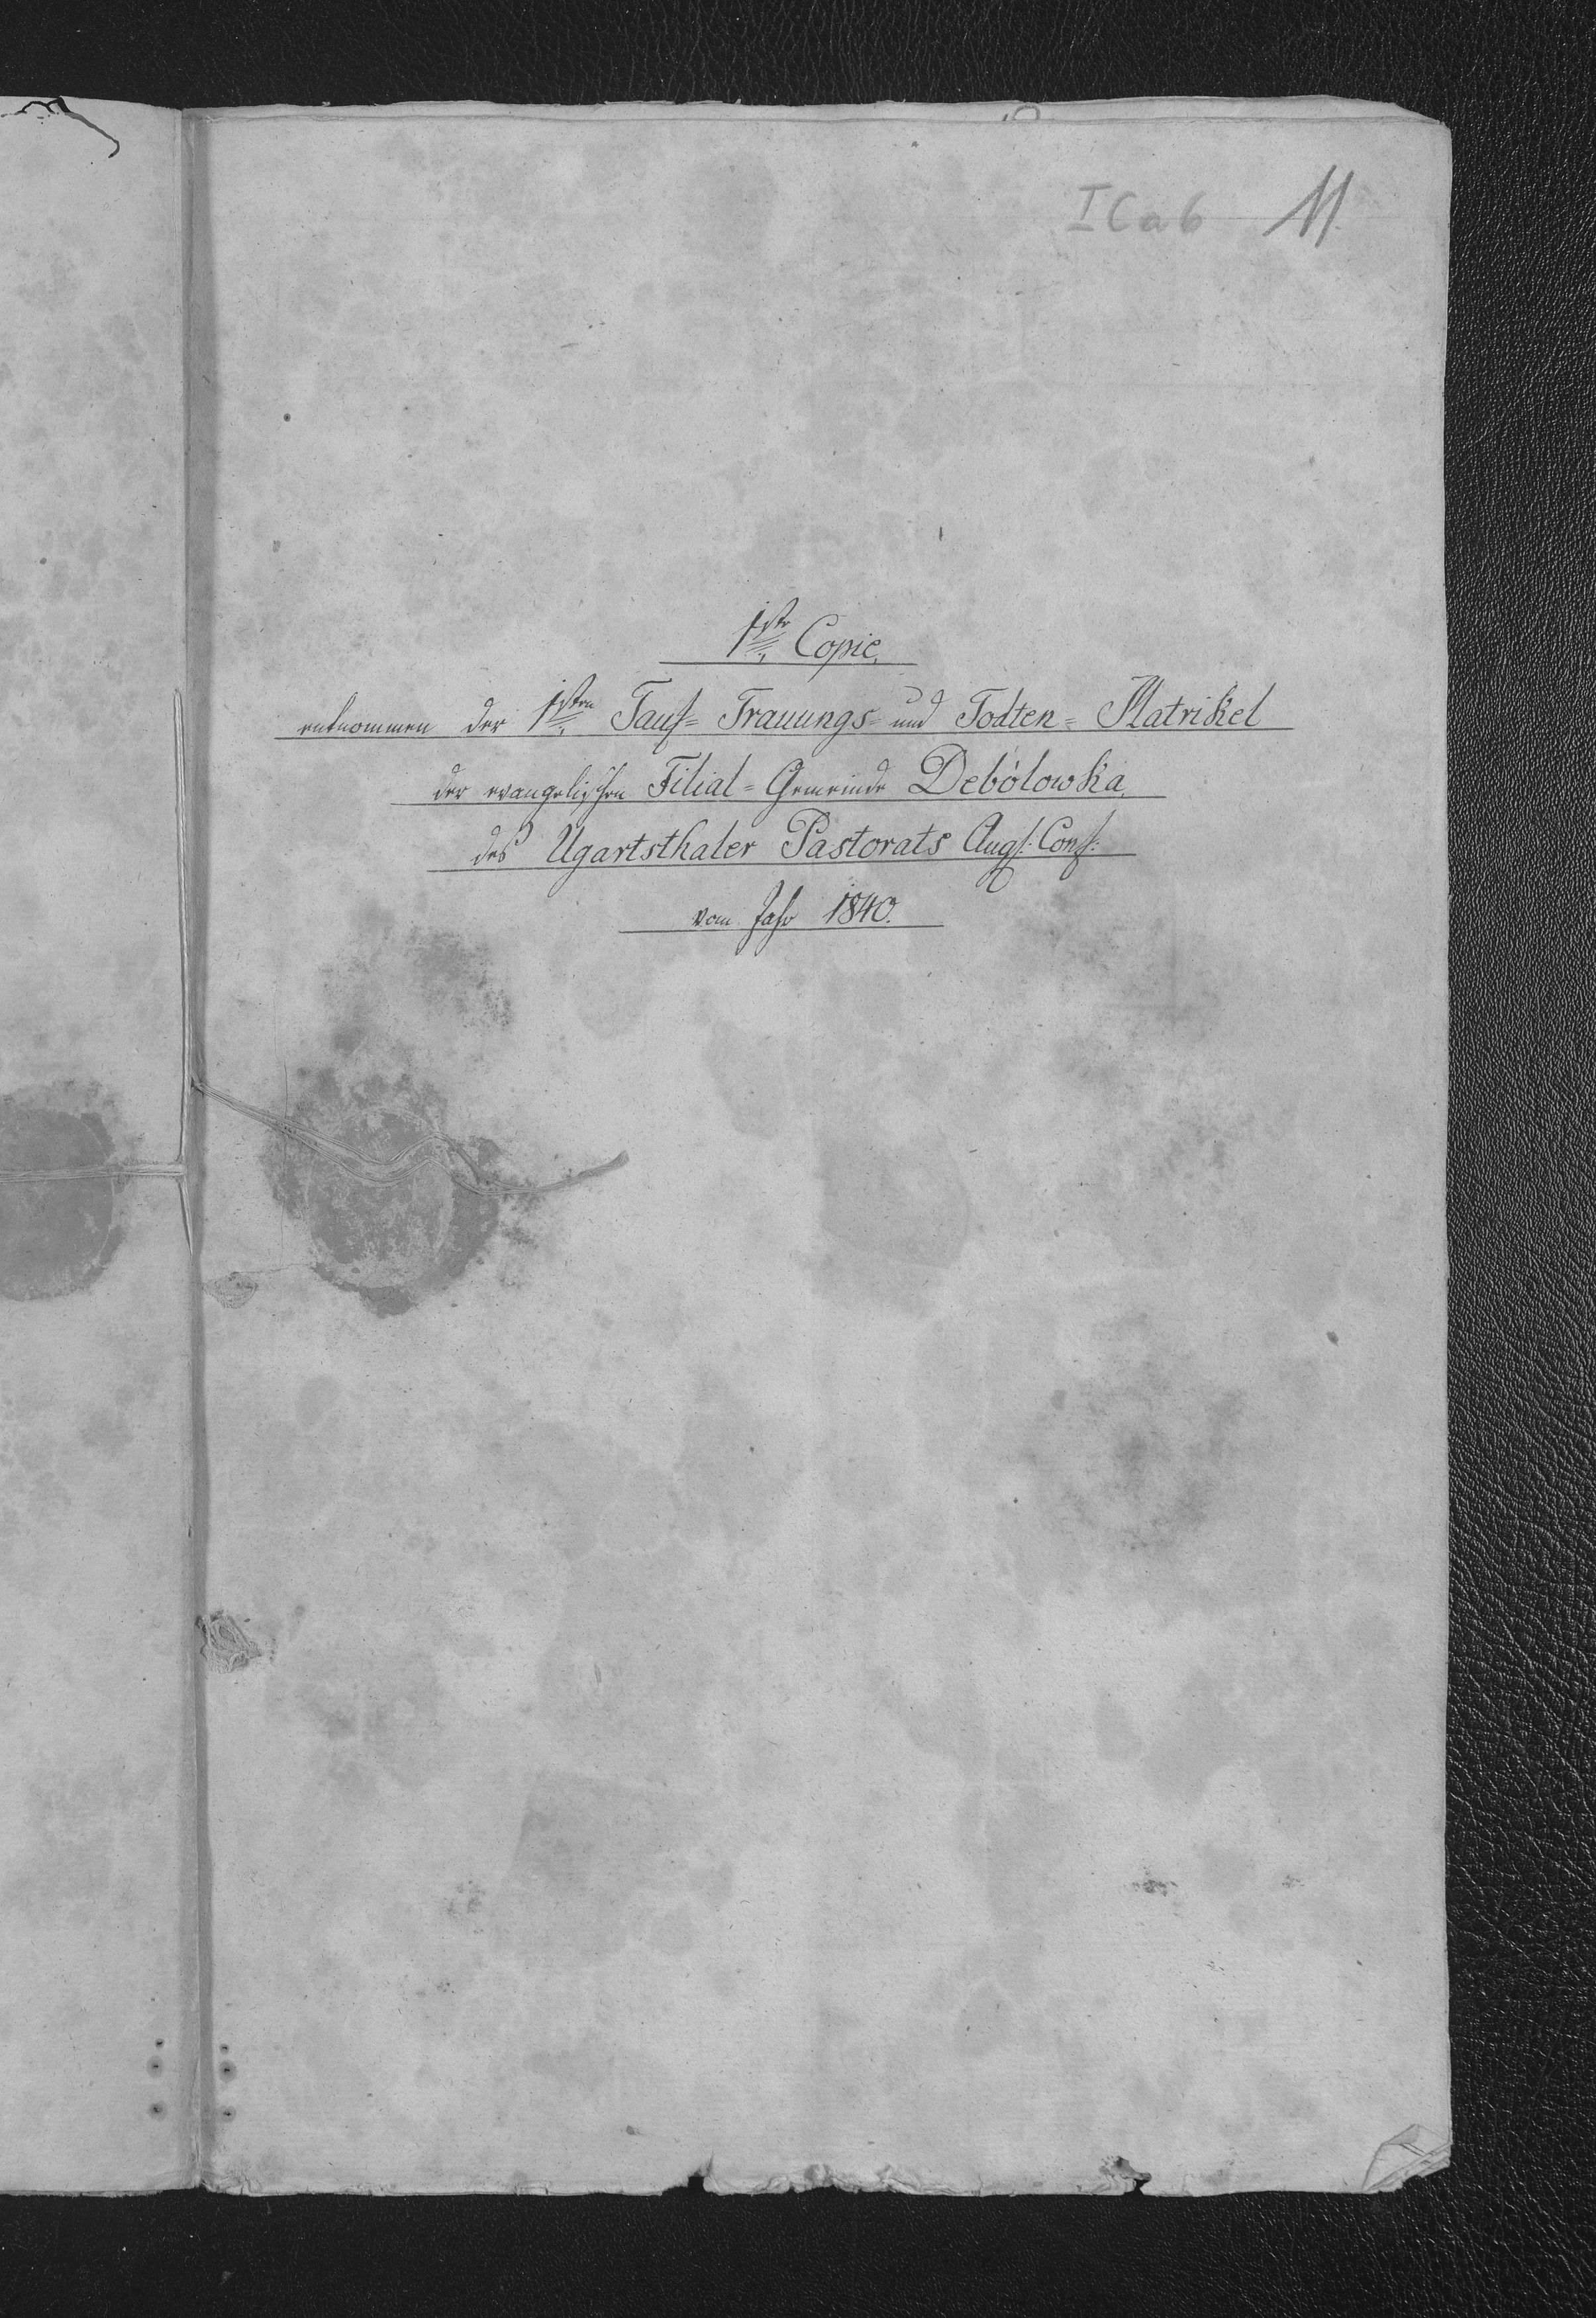 I C a 6 11.
1ste Copie,
entnommen der 1sten Tauf= Trauungs= und Todten= Matrikel
der evangelischen Filial= Gemeinde Debólowka,
des Ugartsthaler Pastorats Augs: Conf:
vom Jahr 1840.